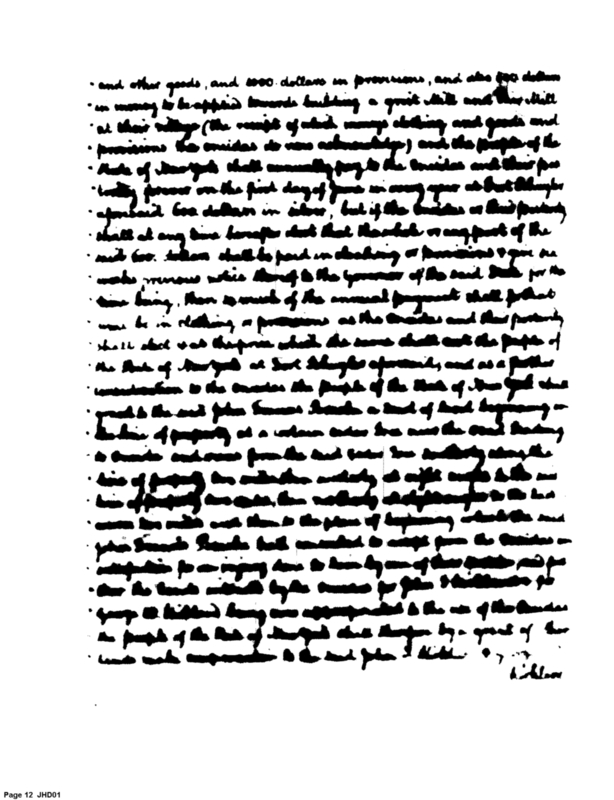 and other goods, and 1000 dollars in provisions, and also 500 dollars
in money to be applied towards building a grist Mill and Saw Mill
at their village (the receipt of which money clothing and goods and
provisions the Oneidas do now acknowledge) and the people of the
State of New York shall annually pay to the Oneidas and their pos
terity forever on the first day of June in every year at Fort Schuyler
aforesaid 600 dollars in silver, but if the Oneidas or their posterity
shall at any time hereafter elect that the whole or any part of the
said 600 dollars shall be paid in cloathing or provisions & give six
weeks previous notice thereof to the Governor of the said State for the
time being, then so much of the annual payment shall for that
time be in clothing or provisions as the Oneidas and their posterity
shall elect & at the price which the same shall cost the people of
the State of New York at Fort Schuyler aforesaid, and as a further
consideration to the Oneidas the people of the State of New York shall
grant to the said John Francis a tract of land beginning in
the line of property at a certain Cedar Tree near the road leading
to Oneida and runs from the said Cedar Tree southerly along the
line of property two miles then westerly at right angles to the said
line of property two miles, then northerly at right angles to the last
course two miles and then to the place of beginning which the said
John Francis hath consented to accept from the Oneidas in
satisfaction for an injury done to him by one of their said
the by the Oneidas for John &
George W. Kirkland being now appropriated to the use of the Oneidas
the people of the State of New York shall therefore by a grant of other
lands make compensation to the said John &
Kirkland
Page 12 JHD01